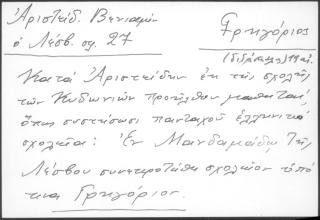 Ἀριστείδ. Βενιαμὶν
ὁ Λέσβ. σ. 27
Γρηγόριος
(διδάσκαλος) 19 αἰ.
Κατὰ Ἀριστείδην ἐκ τῆς σχολῆς
τῶν Κυδωνιῶν προῆλθον μαθηταί,
ὅπως συστήσωσι πανταχοῦ ἑλληνικὰ
σχολεῖα: Ἐν Μανδαμάδῳ τῆς
Λέσβου συνεκροτήθη σχολεῖον ὑπό
τινα Γρηγόριον.